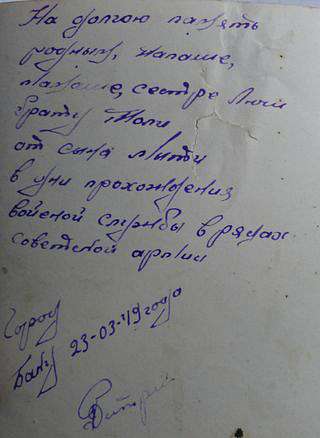 На долгою память
родным, папаше,
мамаше, сестре Люси
Брату Толи
от сына Мити
в дни прохождения
войской службы в рядах
советской армии
Город
Баку 23-03-49 года